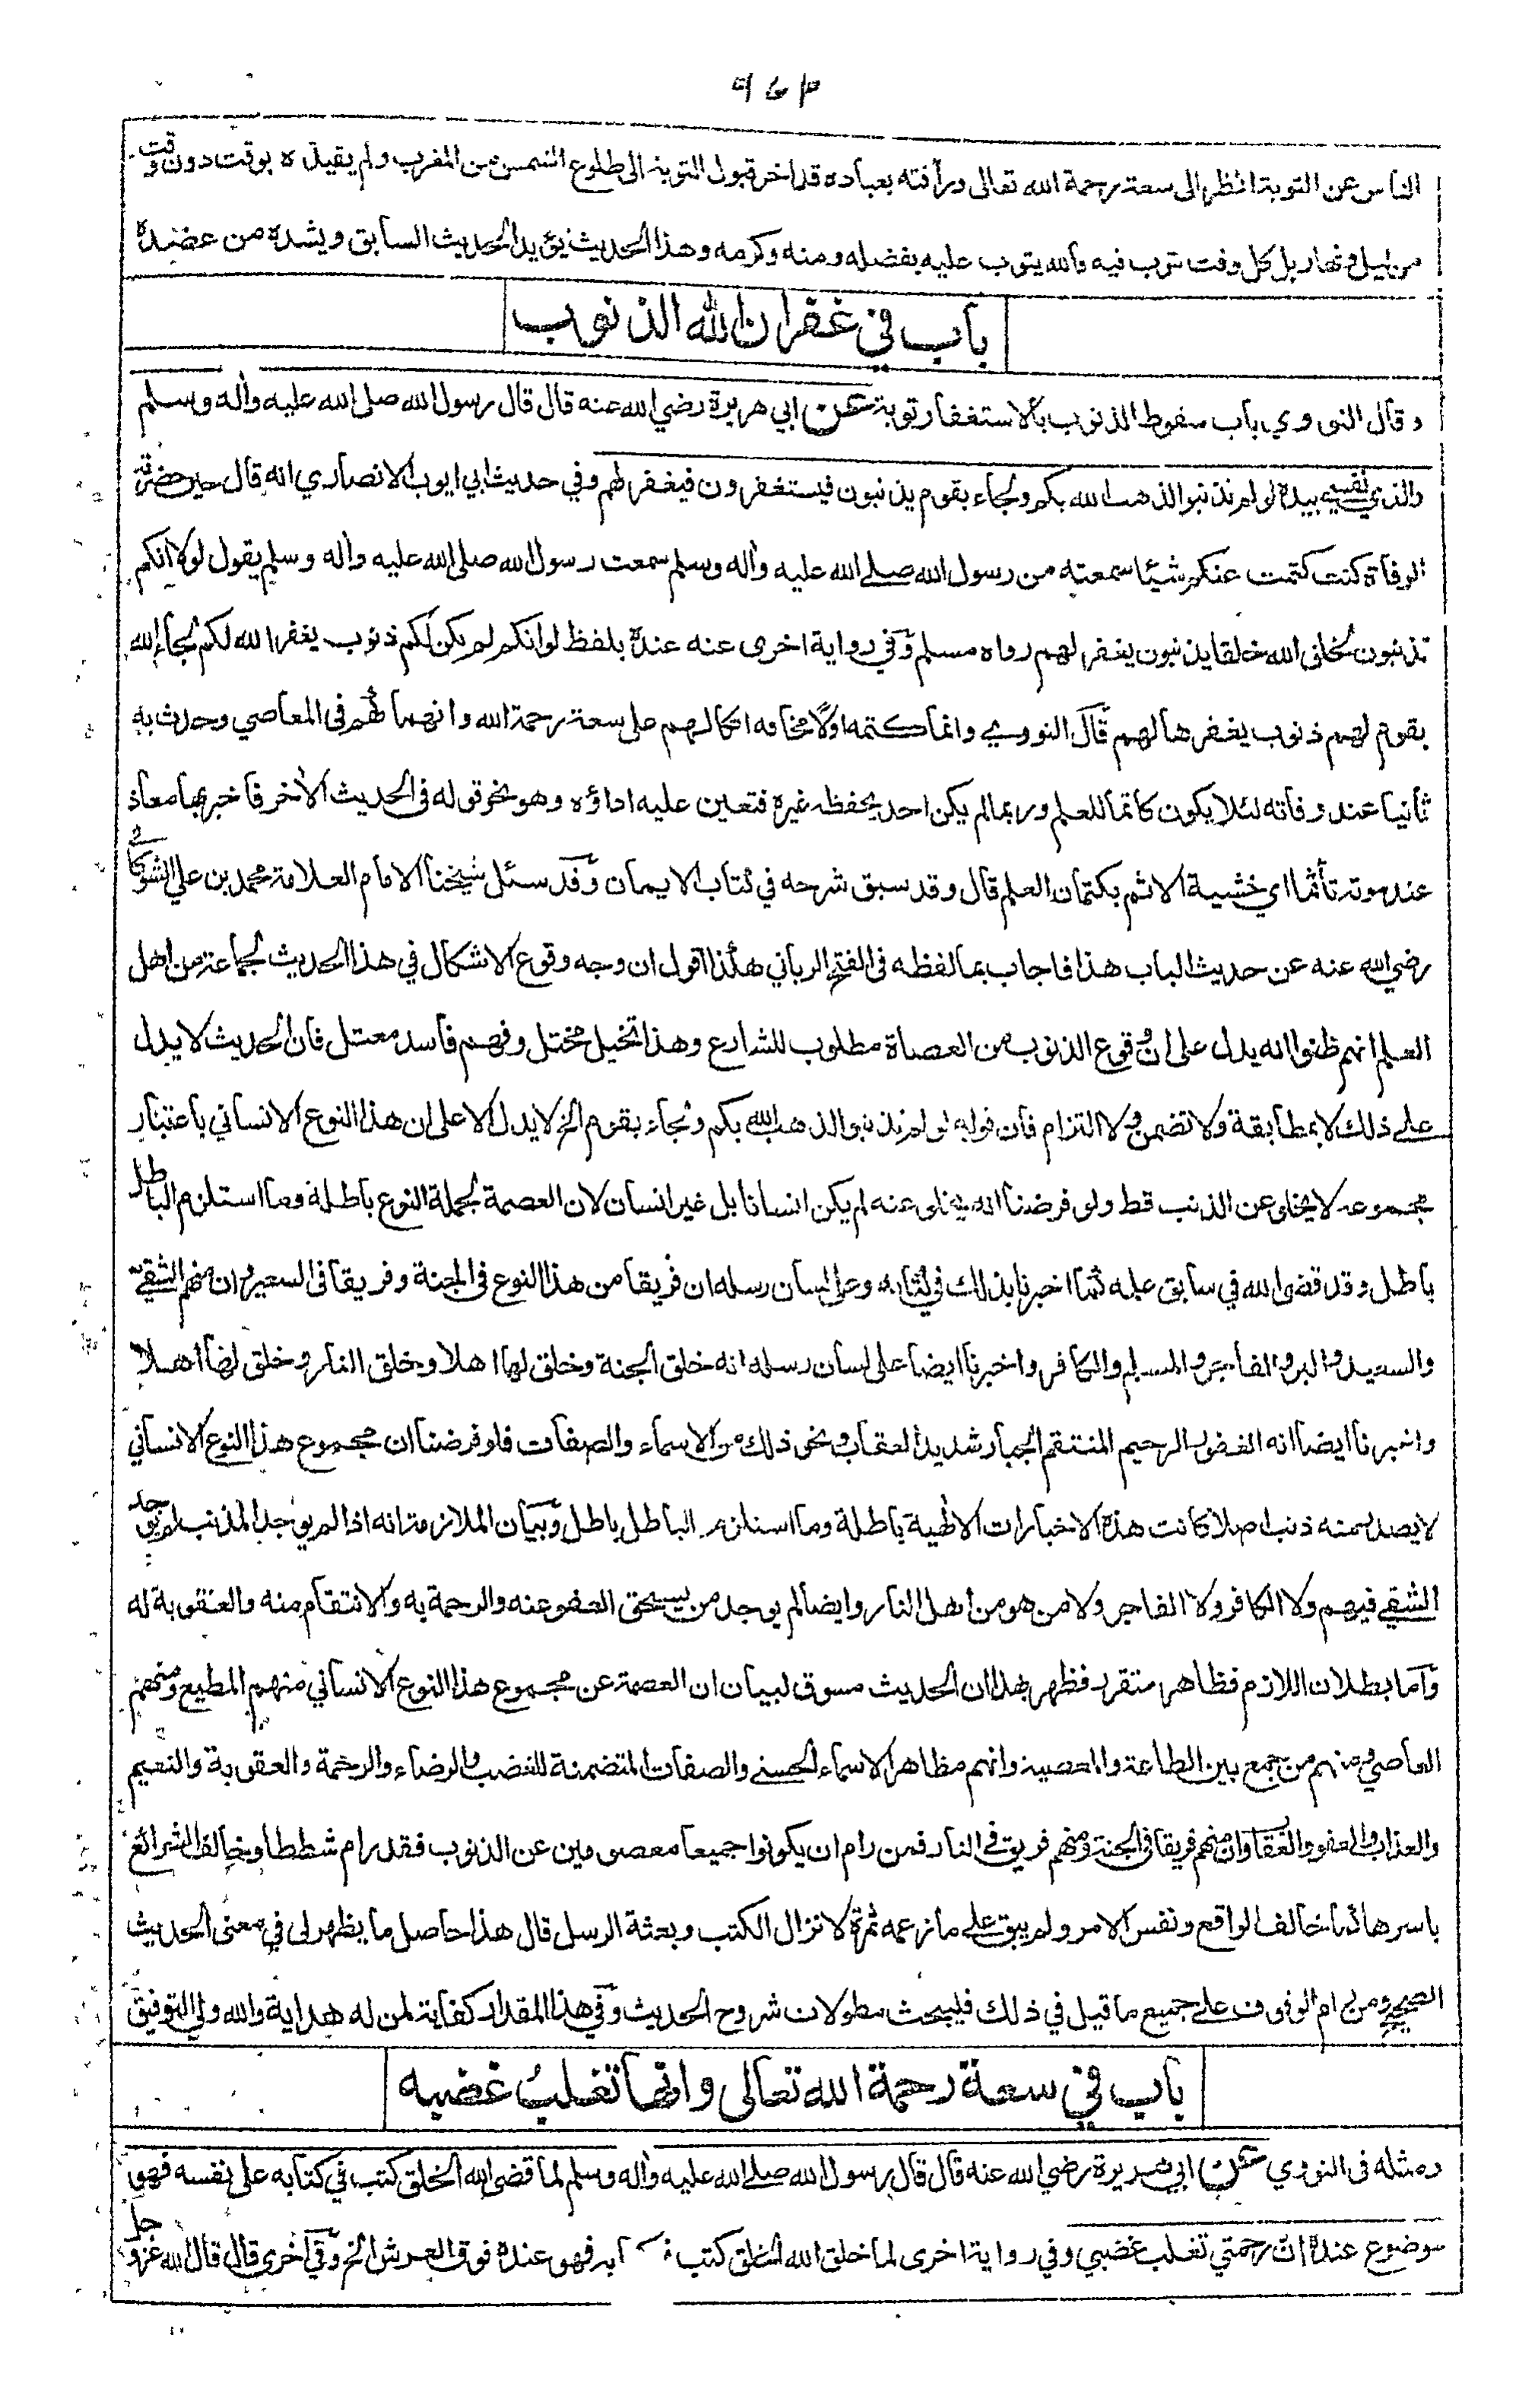 الناس عن التوبة انظر الى سعة رحمة الله تعالى ورأفته بعباده قد اخر قبول التوبة الى طلوع الشمس من المغرب ولم يقيده بوقت دون وقت
من ليل ونهار بل كل وقت تتوب فيه والله يتوب عليه بفضله ومنه وكرمه وهذا الحديث يؤيد الحديث السابق ويشده من عضده
باب في غفران الله الذنوب
وقال النووي باب سقوط الذنوب بالاستغفار توبة عن ابي هريرة رضي الله عنه قال قال رسول الله صلى الله عليه وأله وسلم
والذي نفسي بيده لو لم تذنبوا لذهب الله بكم ولجاء بقوم يذنبون فيستغفرون فيغفر لهم وفي حديث ابي ايوب الانصاري انه قال حين حضرته
الوفاة كنت كتمت عنكم شيئا سمعته من رسول الله صلے الله عليه وأله وسلم سمعت رسول الله صلى الله عليه وأله وسلم يقول لولا انكم
تذنبون لخلق الله خلقا يذنبون يغفر لهم رواه مسلم وفي رواية اخرى عنه عنده بلفظ لو انكم لم يكن لكم ذنوب يغفر الله لكم لجاء الله
بقوم لهم ذنوب يغفرها لهم قال النووي وانما كتمه اولًا مخافه اتكالهم على سعة رحمة الله وانهماكهم في المعاصي وحدث به
ثانيا عند وفاته لئلا يكون كاتما للعلم وربما لم يكن احد يحفظه غيره فتعين عليه اداؤه وهو نحو قوله فى الحديث الأخر فاخبر بها معاذ
عند موته تأثما اي خشية الاثم بكتمان العلم قال وقد سبق شرحه في كتاب الايمان وقد سئل شيخنا الامام العلامة محمد بن علي الشوكاني
رضي الله عنه عن حديث الباب هذا فاجاب بما لفظه فى الفتح الرباني هكذا اقول ان وجه وقوع الاشكال في هذا الحديث لجماعة من اهل
العلم انهم ظنوا انه يدل على ان وقوع الذنوب من العصاة مطلوب للشارع وهذا تخيل مختل وفهم فاسد معتل فان الحديث لا يدل
علے ذلك لا بمطابقة ولا تضمن ولا التزام فان قوله لو لم تذنبوا لذهب الله بكم ولجاء بقوم الخ لا يدل الا على ان هذا النوع الانساني باعتبار
مجموعه لا يخلو عن الذنب قط ولو فرضنا انه يخلو عنه لم يكن انسانا بل غير انسان لان العصمة لجملة النوع باطلة وما استلزم الباطل
باطل وقد قضى الله في سابق علمه كما اخبرنا بذلك في كتابه وعلى لسان رسله ان فريقا من هذا النوع فى الجنة وفريقا فى السعير وان منهم الشقي
والسعيد والبر والفاجر والمسلم والكافر واخبرنا ايضا على لسان رسله انه خلق الجنة وخلق لها اهلا وخلق النار وخلق لها اهلا
واخبرنا ايضا انه الغفور الرحيم المنتقم الجبار شديد العقاب ونحو ذلك من الاسماء والصفات فلو فرضنا ان مجموع هذا النوع الانساني
لا يصدر منه ذنب اصلا كانت هذه الاخبارات الالهية باطلة وما استلزم الباطل باطل وبيان الملازمة انه اذا لم يوجد المذنب لم يوجد
الشقي فيهم ولا الكافر ولا الفاجر ولا من هو من اهل النار وايضا لم يوجد من يستحق العفو عنه والرحمة به والانتقام منه والعقوبة له
وأما بطلان اللازم فظاهر متقرر فظهر بهذا ان الحديث مسوق لبيان ان العصمة عن مجموع هذا النوع الانساني منهم المطيع ومنهم
العاصي ومنهم من جمع بين الطاعة والمعصية وانهم مظاهر الاسماء الحسنے والصفات المتضمنة للغضب والرضاء والرحمة والعقوبة والنعيم
والعذاب والعفو والعقاب وان منهم فريقا فى الجنة ومنهم فريق في النار فمن رام ان يكونوا جميعا معصومين عن الذنوب فقد رام شططا وخالف الشرائع
باسرها كما خالف الواقع ونفس الامر ولم يبق علے ما زعمه ثمرة لانزال الكتب وبعثة الرسل قال هذا حاصل ما يظهر لى في معنى الحديث
الصحيح ومن رام الوقوف علے جميع ما قيل في ذلك فليبحث مطولات شروح الحديث وفي هذا المقدار كفاية لمن له هداية والله ولي التوفيق
باب في سعة رحمة الله تعالى وانها تغلب غضبه
ومثله فى النووي عن ابي هريرة رضي الله عنه قال قال رسول الله صلے الله عليه وأله وسلم لما قضى الله الخلق كتب في كتابه على نفسه فهو
موضوع عنده ان رحمتي تغلب غضبي وفي رواية اخرى لما خلق الله الخلق كتب فهو عنده فوق العرش الخ وفي اخرى قال قال الله عز وجل